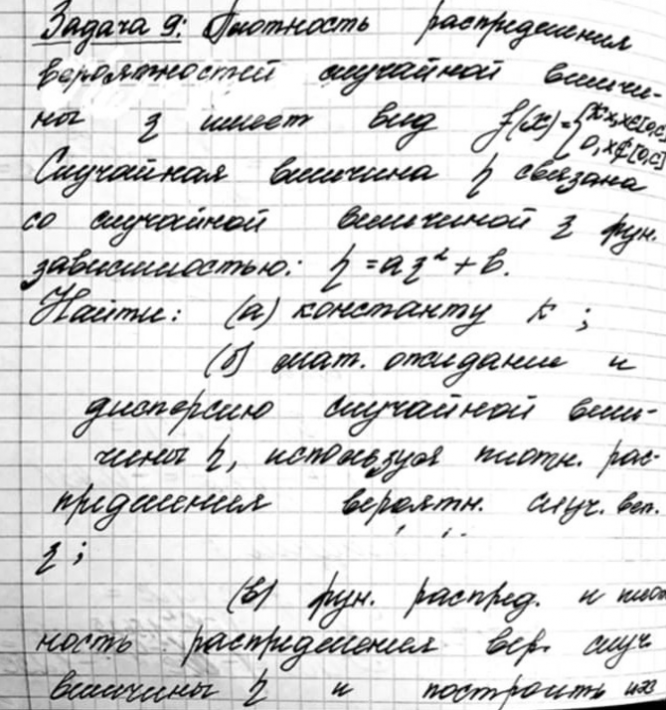 Задача 9: Плотность распределения
вероятностей случайной величи-
ны ξ имеет вид f(x)={kx, x∈[0,c]
0, x∉[0,c]
Случайная величина η связана
со случайной величиной ξ фун.
зависимостью: η = aξ² + b.
Найти: (а) константу k ;
(б) мат. ожидание и
дисперсию случайной вели-
чины η, используя плотн. рас-
пределения вероятн. случ. вел.
ξ ;
(в) фун. распред. и плот
ность распределения вер. случ
величины η и построить их